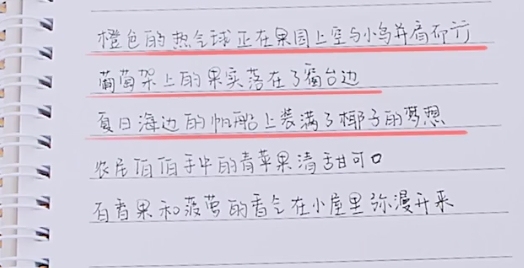 橙色的热气球正在果园上空与小鸟并肩而行
葡萄架上的果实落在了窗台边
夏日海边的帆船上装满了椰子的梦想
农居伯伯手中的青苹果清甜可口
百香果和菠萝的香气在小屋里弥漫开来